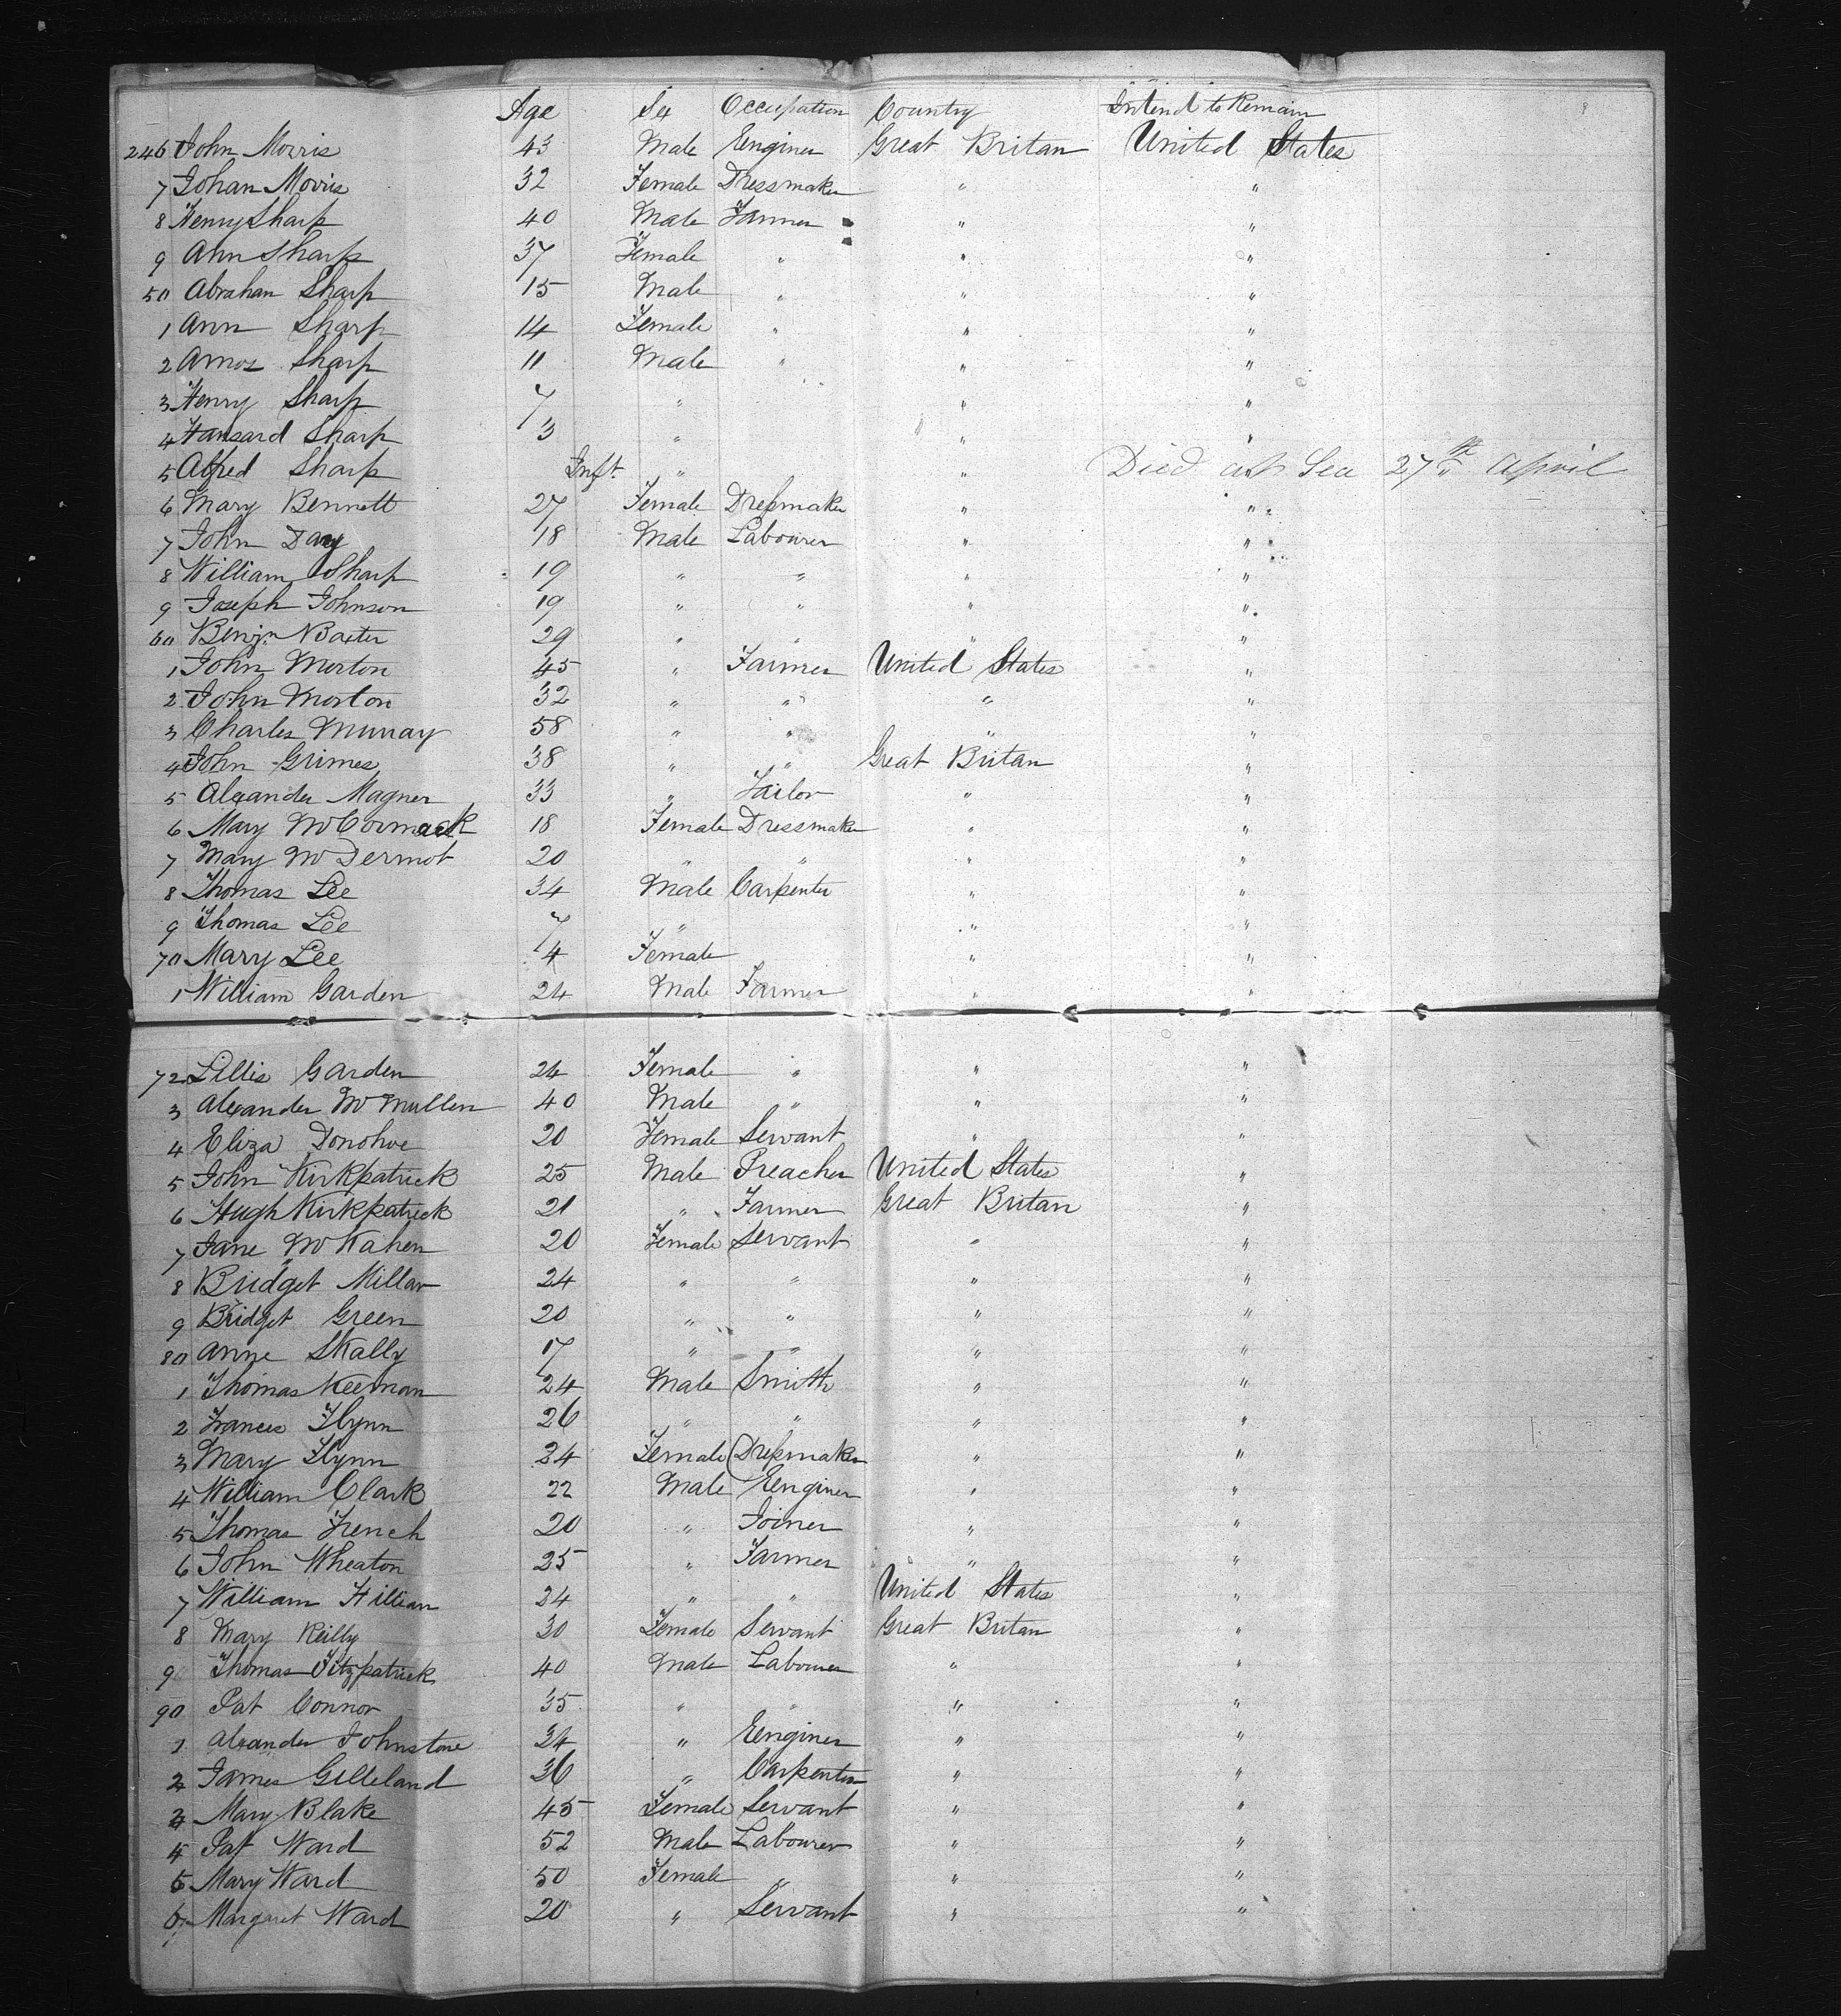 Age Sex Occupation Country Intend to Remain
246 John Morris 43 Male Enginer Great Britan United States
7 Johan Morris 32 Female Dressmaker " "
8 Henry Sharp 40 Male Farmer " "
9 Ann Sharp 37 Female " " "
50 Abrahan Sharp 15 Male " " "
1 Ann Sharp 14 Female " " "
2 Amos Sharp 11 Male " " "
3 Henry Sharp 7 " " "
4 Hansard Sharp 3 " " "
5 Alfred Sharp Inft. " " Died at Sea 27th April
6 Mary Bennett 27 Female Dressmaker " "
7 John Day 18 Male Labourer " "
8 William Sharp 19 " " " "
9 Joseph Johnson 19 " " " "
60 Benjn Baxter 29 " " " "
1 John Morton 45 " Farmer United States "
2 John Morton 32 " " " "
3 Charles Murray 58 " " " "
4 John Grimes 38 " " Great Britan "
5 Alexander Magner 33 " Tailor " "
6 Mary McCormack 18 Female Dressmaker " "
7 Mary McDermot 20 " " " "
8 Thomas Lee 34 Male Carpenter " "
9 Thomas Lee 7 " " "
70 Mary Lee 4 Female " "
1 William Garden 24 Male Farmer " "
72 Lillis Garden 24 Female " " "
3 Alexander McMullen 40 Male " " "
4 Eliza Donohoe 20 Female Servant " "
5 John Kirkpatrick 25 Male Preacher United States "
6 Hugh Kirkpatrick 21 " Farmer Great Britan "
7 Jane McKahen 20 Female Servant " "
8 Bridget Millar 24 " " " "
9 Bridget Green 20 " " " "
80 Anne Skally 17 " " " "
1 Thomas Keernan 24 Male Smith " "
2 Frances Flynn 26 " " " "
3 Mary Flynn 24 Female Dressmaker " "
4 William Clark 22 Male Enginer " "
5 Thomas French 20 " Joiner " "
6 John Wheaton 25 " Farmer " "
7 William Hillian 24 " " United States "
8 Mary Reilly 30 Female Servant Great Britan "
9 Thomas Fitzpatrick 40 Male Labourer " "
90 Pat Connor 35 " " " "
1 Alexander Johnstone 24 " Enginer " "
2 James Gilleland 36 " Carpenter " "
3 Mary Blake 45 Female Servant " "
4 Pat Ward 52 Male Labourer " "
5 Mary Ward 50 Female " " "
6 Margaret Ward 20 " Servant " "